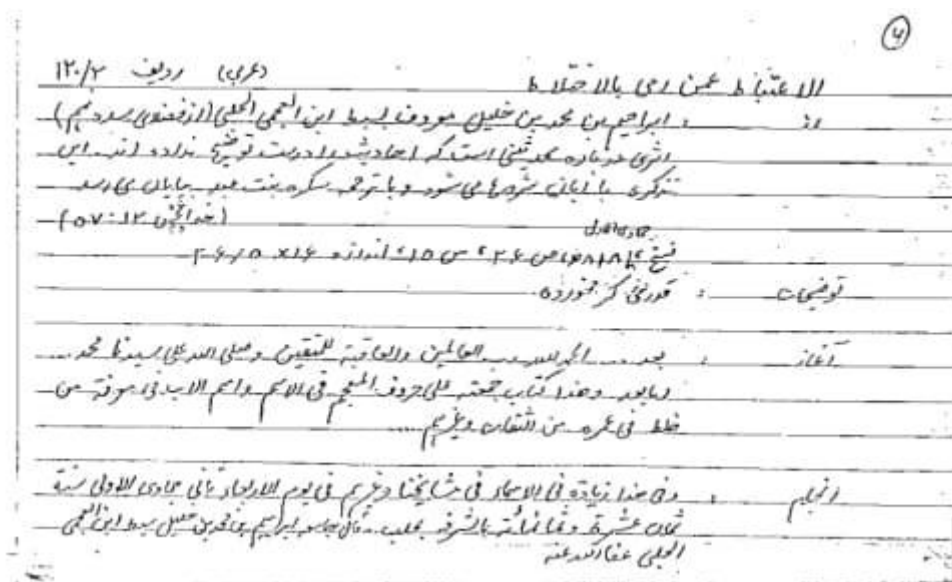 ۴
الاعتباط عمن رمی بالاختلاط (عربی) ردیف ۱۲۰/۲
از : ابراهیم بن محمد بن خلیل معروف بسبط ابن العجمی الحلبی (از فضلای سده نهم)
اثری درباره محدثینی است که احادیث را درست توضیح نداده اند. این
تذکره با ابان شروع می شود و با ترجمه سکره بنت عبد بپایان می رسد
(خدابخش ۱۲: ۵۷)
جمادی الاولی
نسخ ۸۱۸ ص ۲۶، س ۱۵، اندازه ۱۶×
توضیحات : قدری کرم خورده
آغاز : بعد .... الحمد لله رب العالمین والعاقبة للمتقین وصلی الله علی سیدنا محمد ....
اما بعد وهذا کتاب جمعته علی حروف المعجم فی الاسم واسم الاب فی معرفة من
خلط فی عمره من الثقات وغیرهم ....
انجام : وفی هذا زیادة فی الاسماء فی مشایخنا وغیرهم فی یوم الاربعاء ثانی جمادی الاولی سنة
ثمان عشرة وثمانمائة بالشرفیة بحلب. قال جامعه ابراهیم بن محمد بن خلیل سبط ابن العجمی
الحلبی عفا الله عنه